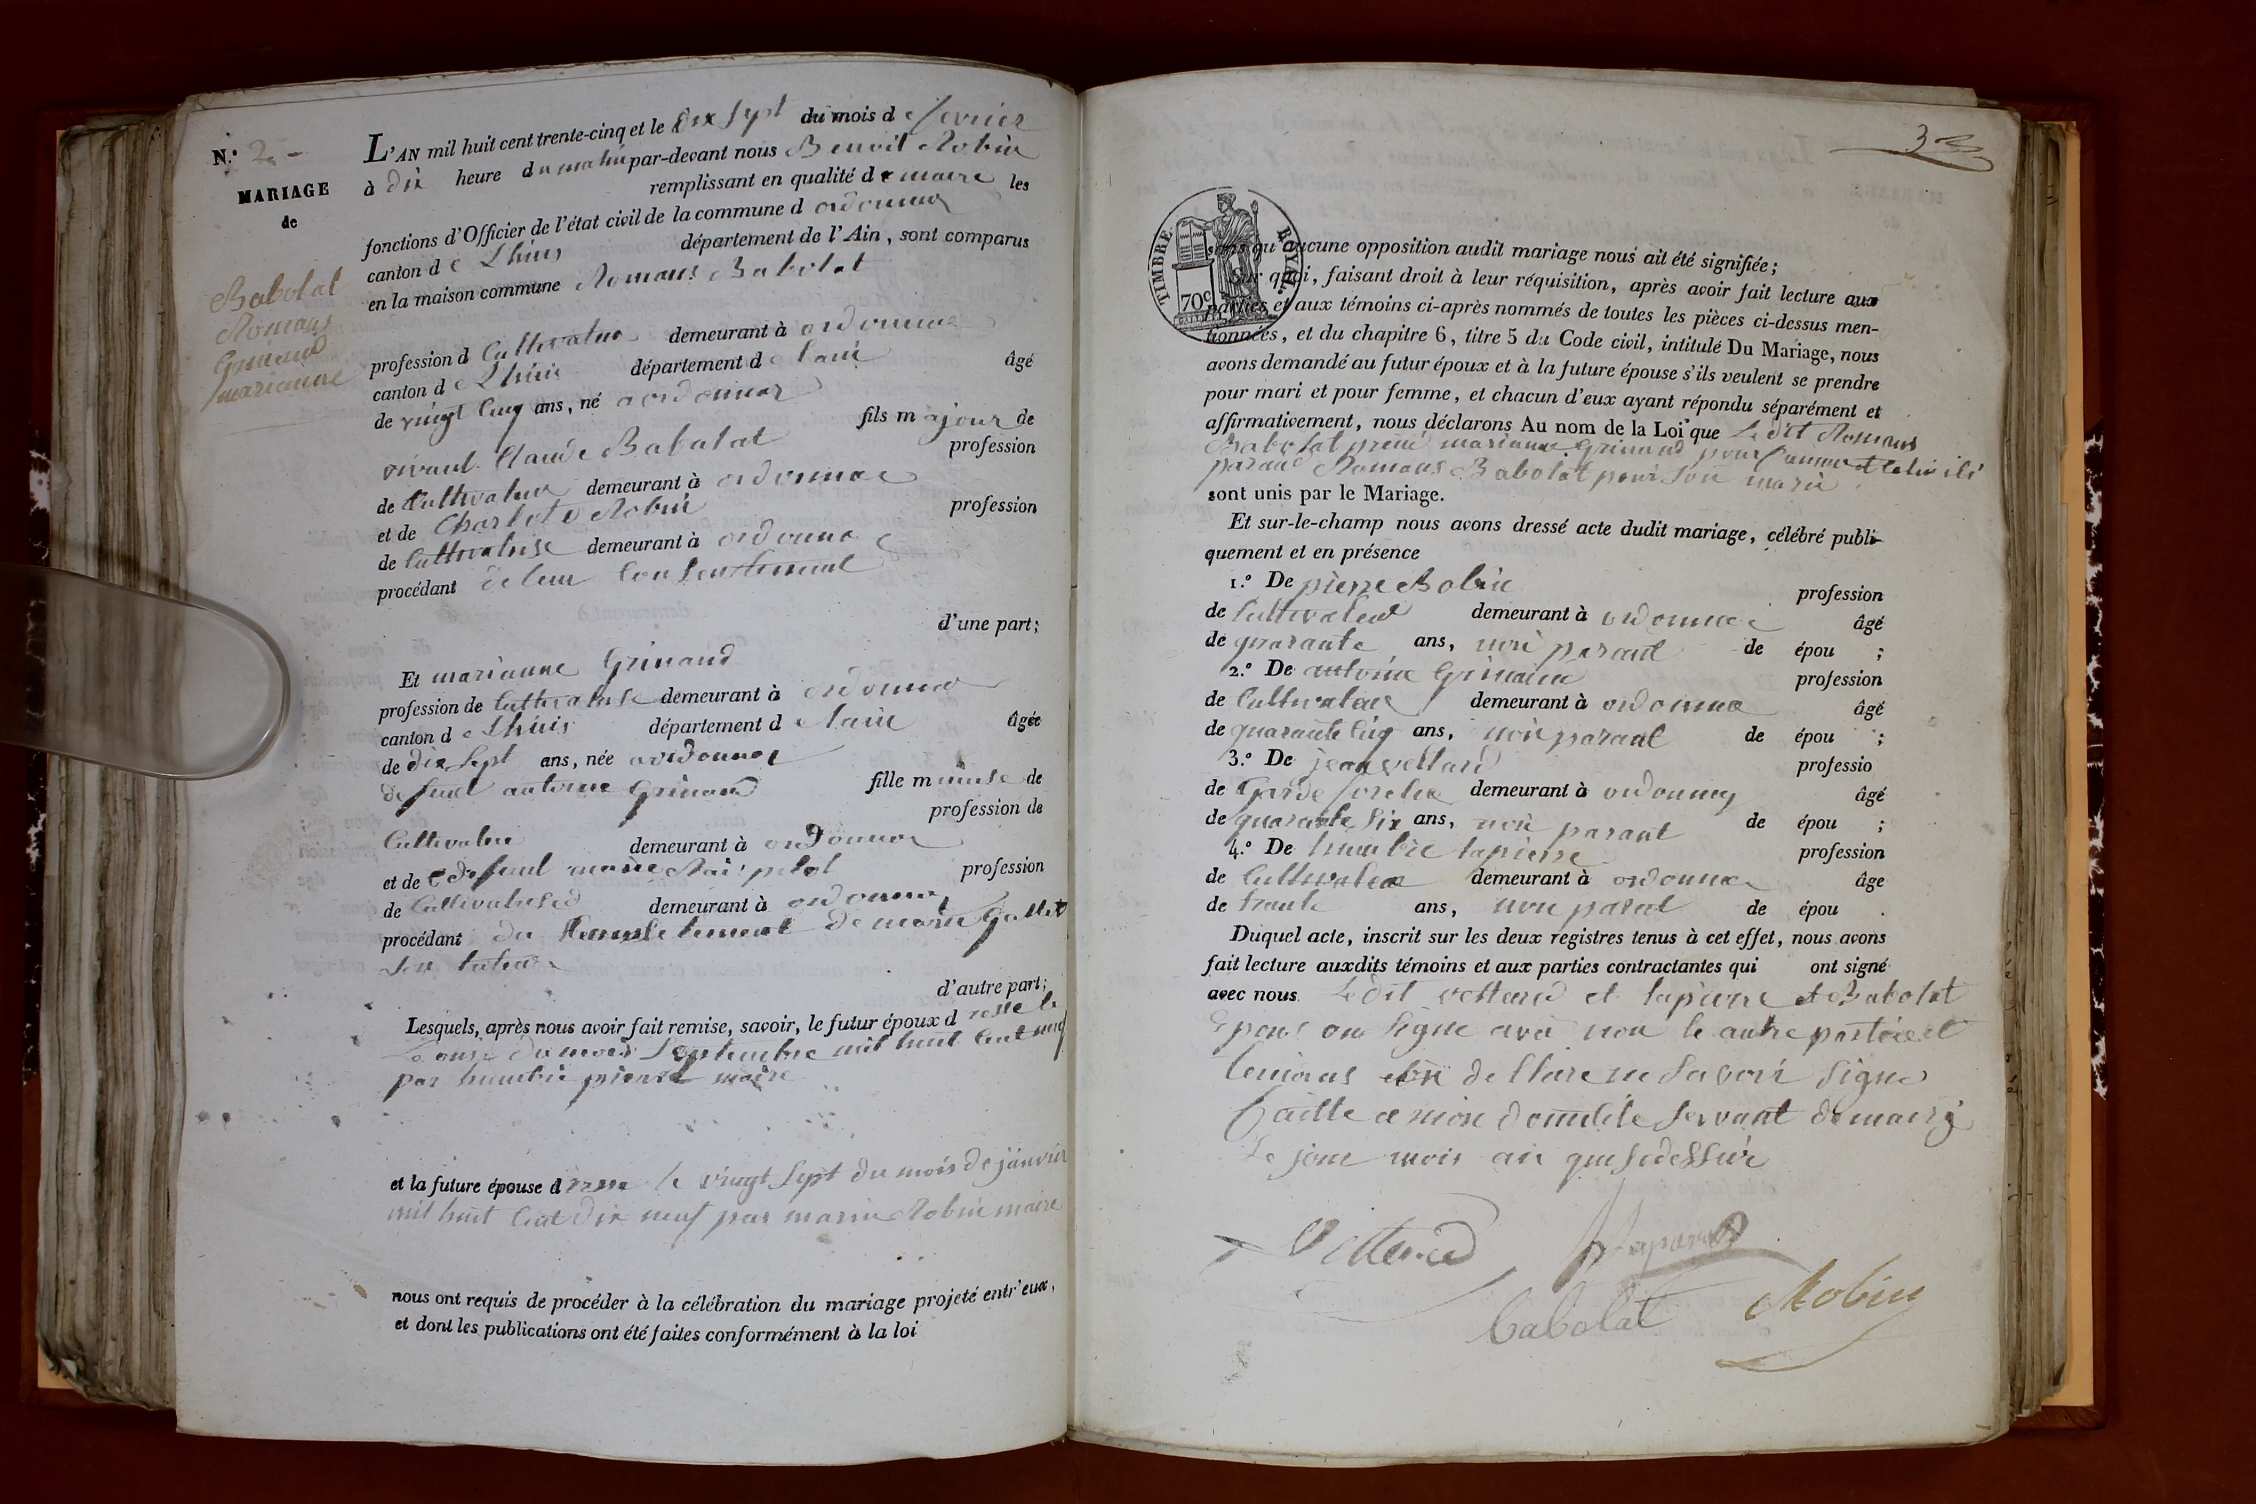 N.° 2
MARIAGE
de
Babolat
Romans
Grinand
marianne
L'AN mil huit cent trente-cinq et le dix sept du mois de fevrier
à dix heure du matin par-devant nous Benoit Robin
remplissant en qualité de maire les
fonctions d'Officier de l'état civil de la commune d ordonna
canton de Lhuis département de l'Ain, sont comparus
en la maison commune Romans Babolat
profession d Cultivateur demeurant à ordonna
canton de Lhuis département de lain âgé
de vingt cinq ans, né a ordonna
fils majour de
vivant Claude Babolat profession
de Cultivateur demeurant à ordonna
et de Charlote Robin profession
de Cultivatrise demeurant à ordonna
procédant de leur Consentement
d'une part;
Et marianne Grinand
profession de Cultivatrise demeurant à ordonna
canton de Lhuis département de lain âgée
de dix sept ans, née a ordonna
fille m de
de feut antoine Grinand profession de
Cultivateur demeurant à ordonna
et de feut marie profession
de demeurant à ordonna
procédant du de marie
son tuteur
d'autre part;
Lesquels, après nous avoir fait remise, savoir, le futur époux d
Le onse du mois Septembre mil huit Cent neuf
par humbir pierre maire
et la future épouse d le vingt sept du mois de janvier
mil huit Cent dix neuf par marin Robin maire
nous ont requis de procéder à la célébration du mariage projeté entr'eux,
et dont les publications ont été faites conformément à la loi
3
TIMBRE ROYAL
70c
sans qu'aucune opposition audit mariage nous ait été signifiée;
Sur quoi, faisant droit à leur réquisition, après avoir fait lecture aux
parties et aux témoins ci-après nommés de toutes les pièces ci-dessus men-
tionnées, et du chapitre 6, titre 5 du Code civil, intitulé Du Mariage, nous
avons demandé au futur époux et à la future épouse s'ils veulent se prendre
pour mari et pour femme, et chacun d'eux ayant répondu séparément et
affirmativement, nous déclarons Au nom de la Loi que Le dit Romans
Babolat prené marianne Grinand pour
Romans Babolat pour son marie
sont unis par le Mariage.
Et sur-le-champ nous avons dressé acte dudit mariage, célébré publi-
quement et en présence
1.° De pierre profession
de Cultivateur demeurant à ordonna âgé
de quarante ans, non parant de épou ;
2.° De antoine profession
de Cultivateur demeurant à ordonna âgé
de quarante cinq ans, non parant de épou ;
3.° De jean vettard professio
de Garde demeurant à ordonna âgé
de quarante six ans, non parant de épou ;
4.° De humbir lapierre profession
de Cultivateur demeurant à ordonna âge
de trante ans, non parent de épou .
Duquel acte, inscrit sur les deux registres tenus à cet effet, nous avons
fait lecture auxdits témoins et aux parties contractantes qui ont signé
avec nous. Le dit vettard et lapierre et Babolat
epous on signe avec nou le autre
temoins de Clare ne savoir signe
a mon domicile servant de mairy
Le jour mois an que
Vettard
Lapierre
babolat
Robin